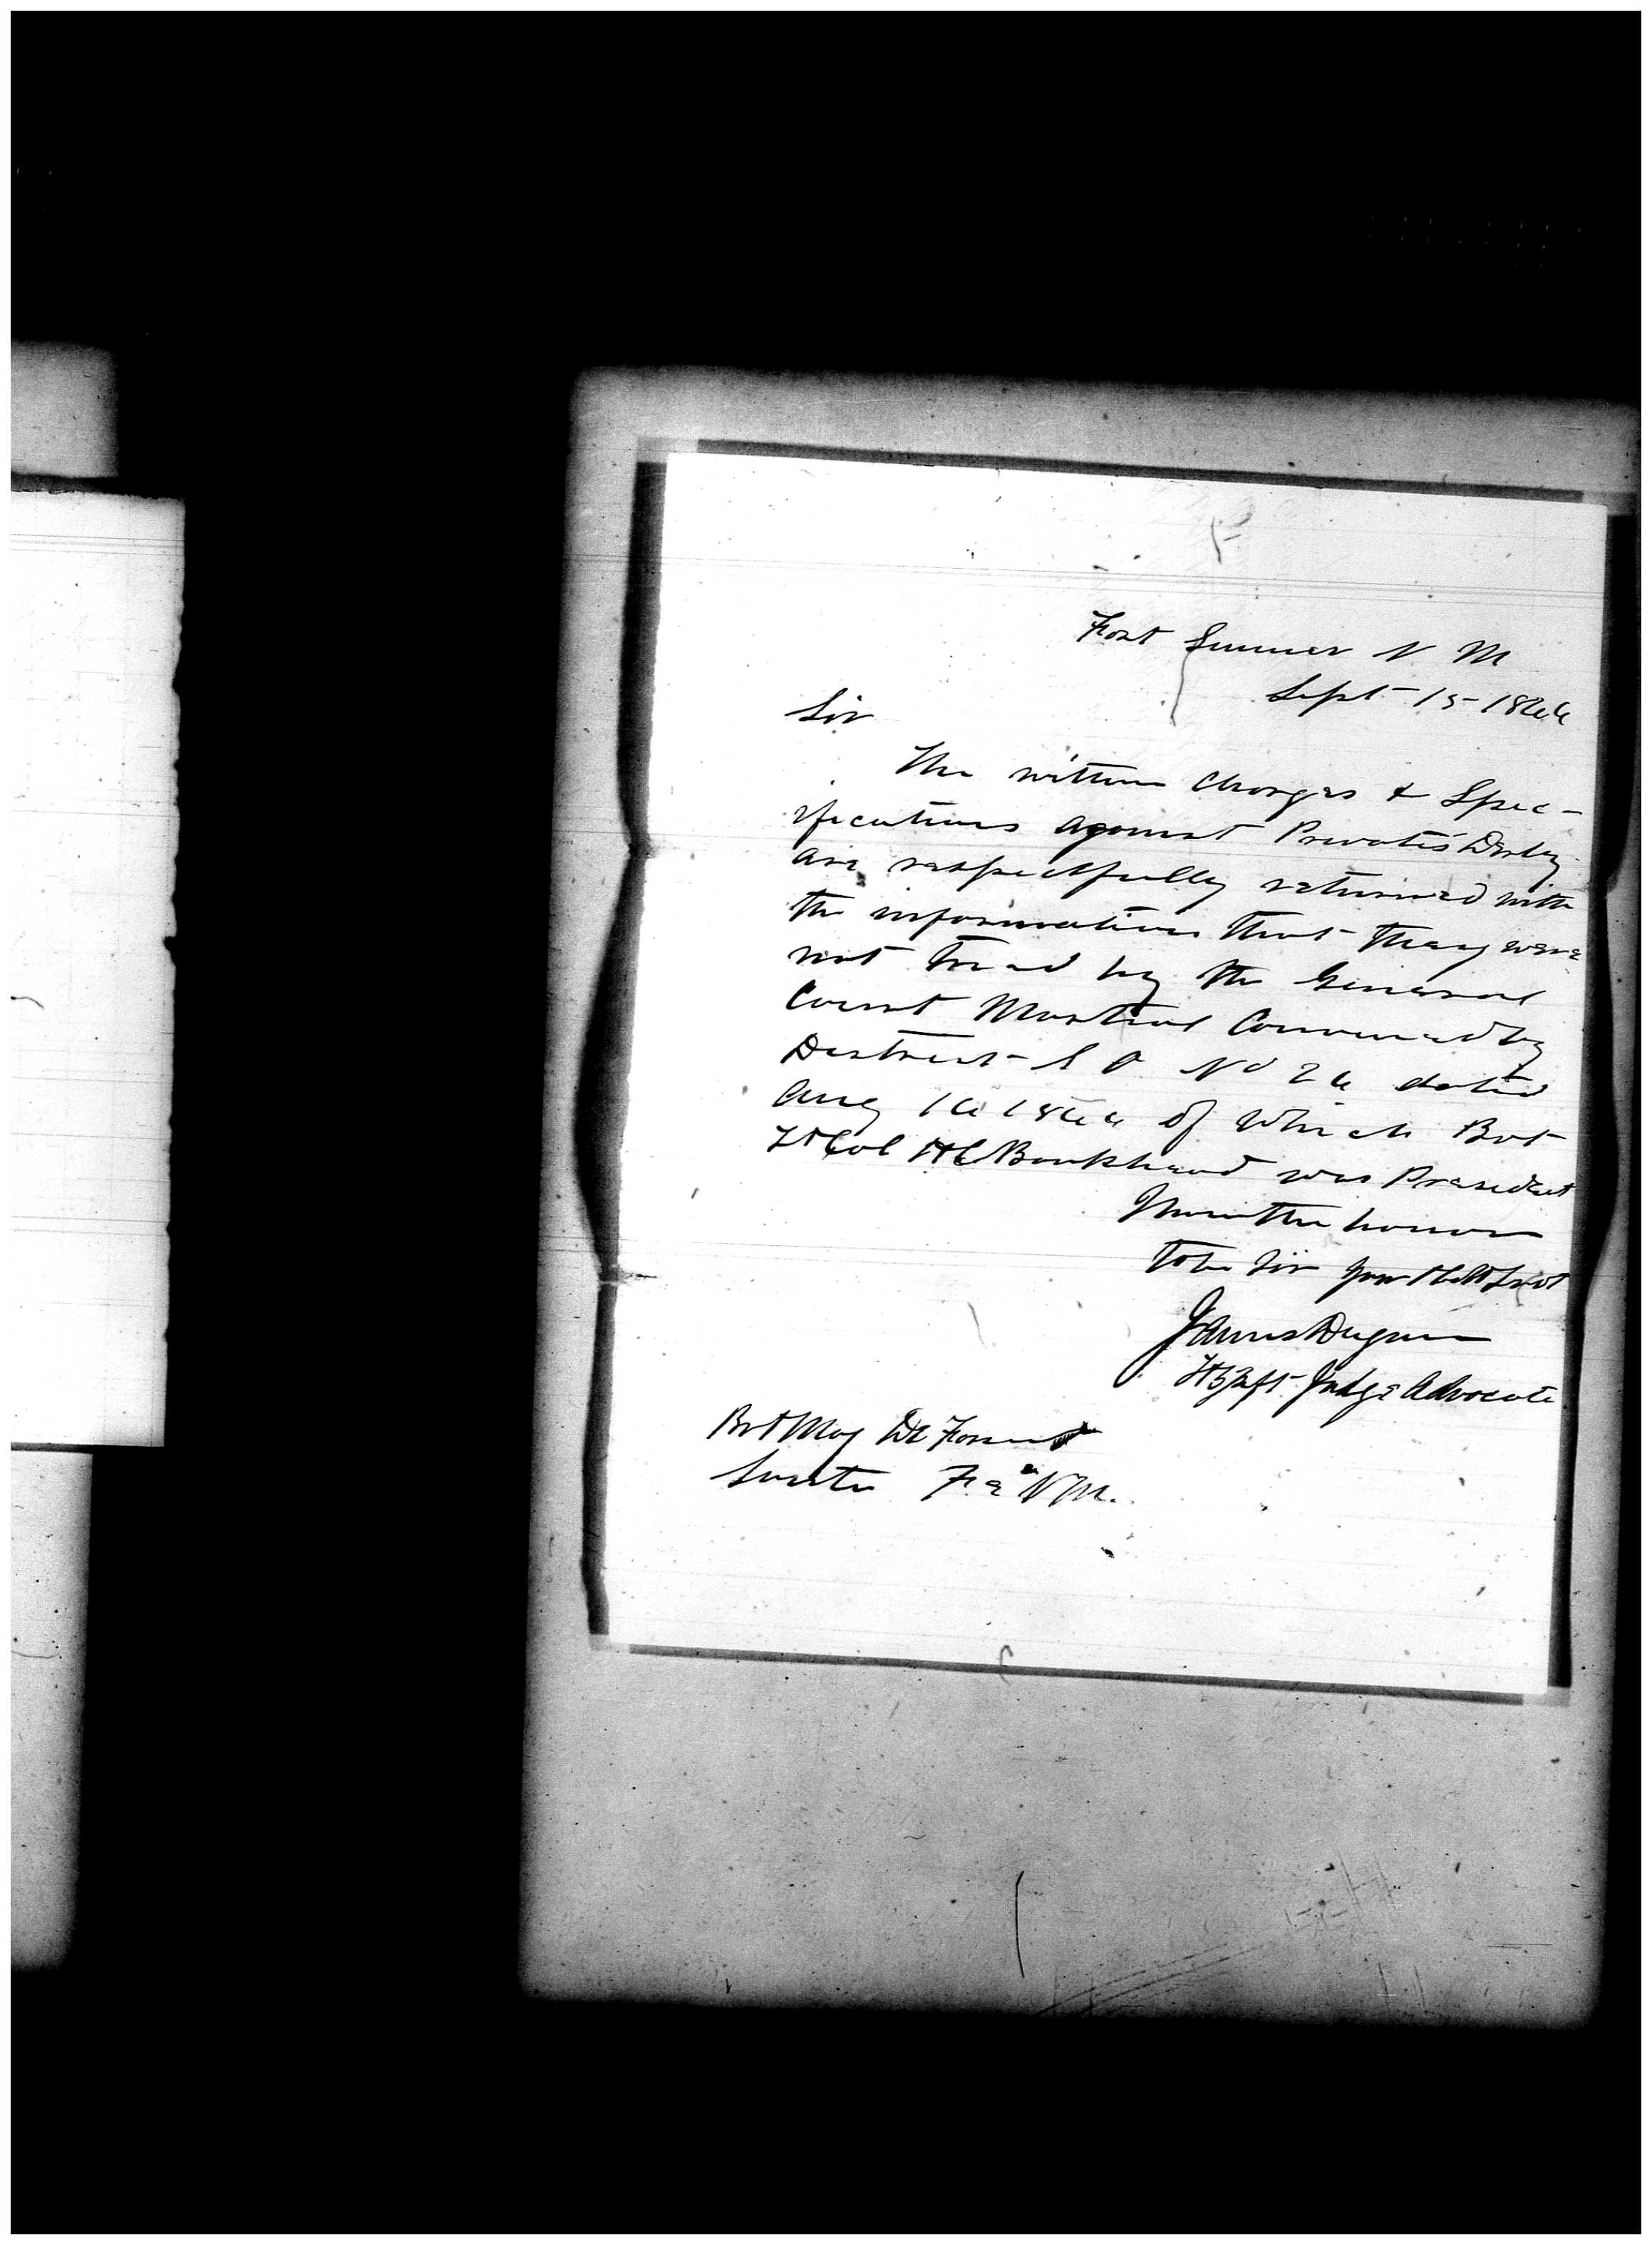 Fort Sumner N M
Sept 15 1866
Sir
The within Charges & Spec-
ifications against Privates Darby
are respectfully returned with
the information that they were
not tried by the General
Court Martial Convened by
District S O No 26 dated
Aug 16 1866 of which Bvt
Lt Col H C Bankhead was President
I have the honor
to be Sir your Obdt Svt
James Dugan
Judge Advocate
Bvt Maj De Forrest
Santa Fe N M.